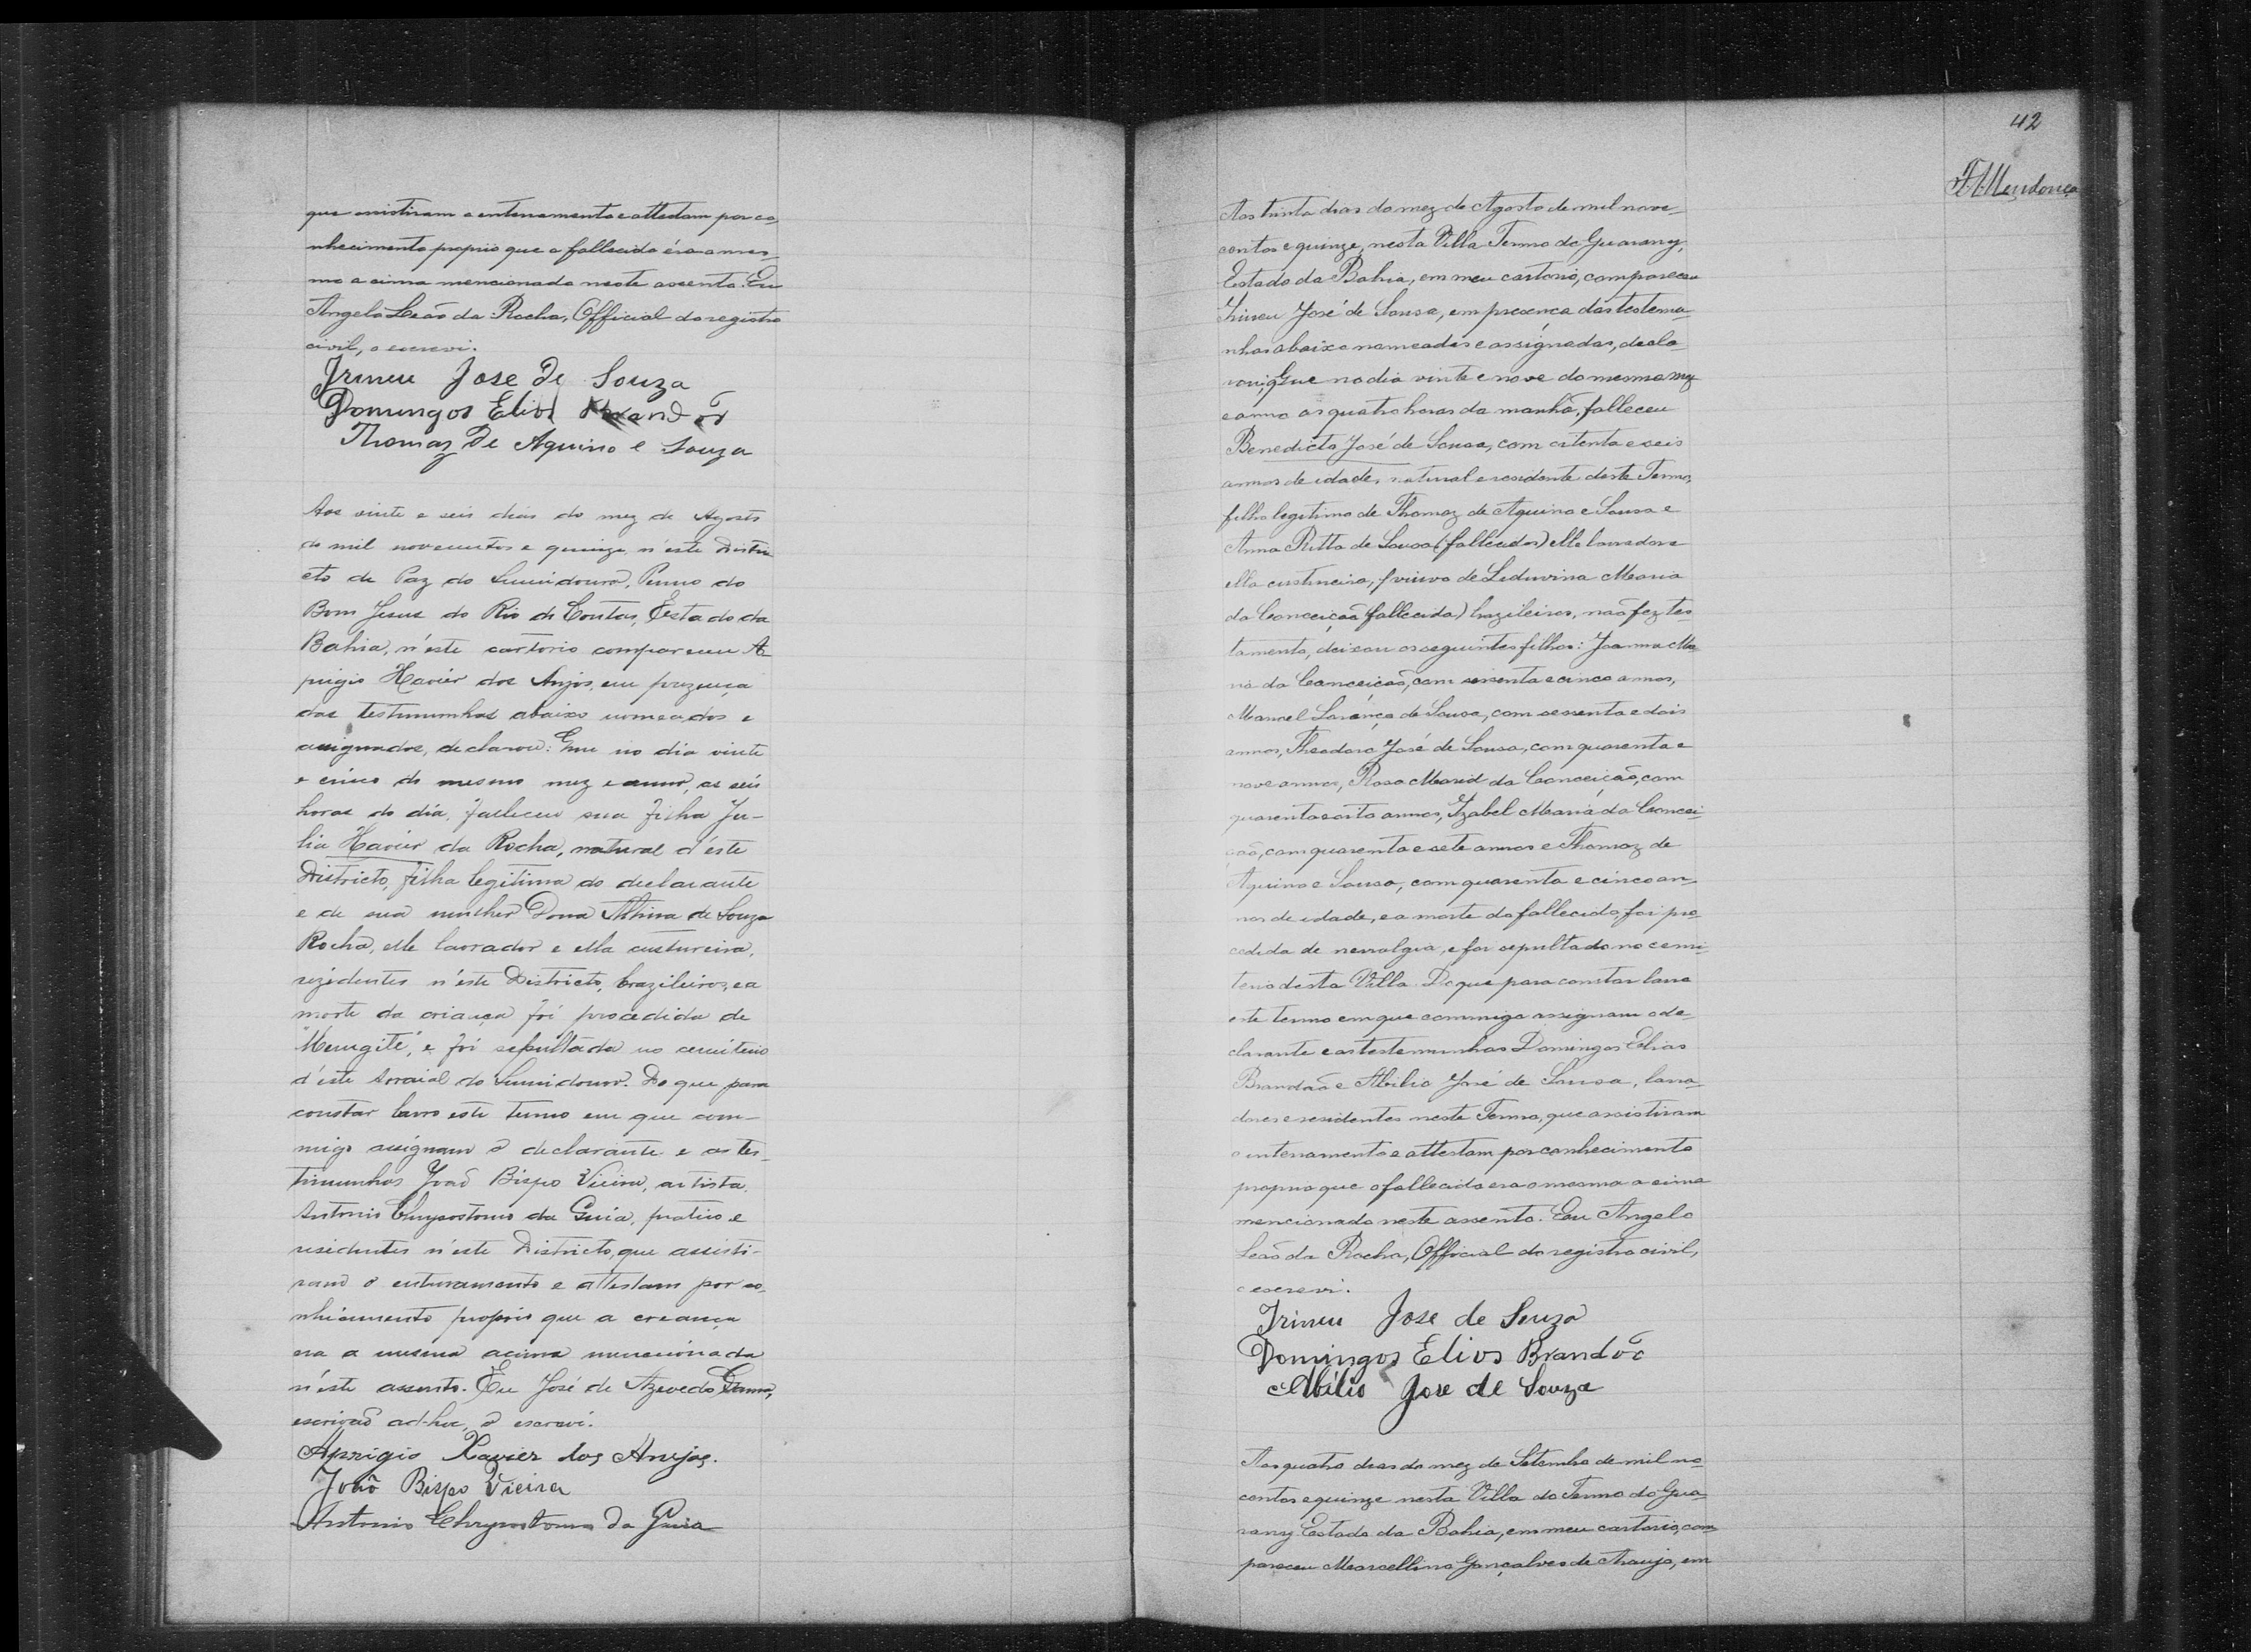 que assistiram o enterramento e attestam por co-
nhecimento proprio que o fallecido éra o mes-
mo a cima mencionado neste assento. Eu
Angelo Leão da Rocha, Official do registro
civil, o escrevi.
Irineu Jose de Souza
Domingos Elios Brandão
Thomaz de Aquino e Souza
Aos vinte e seis dias do mez de Agosto
de mil novecentos e quinze, n'este Distri
cto de Paz do Sumidouro, Termo do
Bom Jesus do Rio de Contas, Estado da
Bahia, n'este cartorio compareceu A-
prigio Xavier dos Anjos, em prezença
das testimunhas abaixo nomeados e
assignados, declarou: Que no dia vinte
e cinco do mesmo mez e anno, as seis
horas do dia, falleceu sua filha Ju-
lia Xavier da Rocha, natural d'éste
Districto, filha legitima do declarante
e de sua mulher Dona Albina de Souza
Rocha, elle lavrador e ella custureira,
rezidentes n'éste Districto, brazileiros, e a
morte da criança foi procedida de
"Mengite", e foi sepultada no cemiterio
d'éste Arraial do Sumidouro. Do que para
constar lavro este termo em que com-
migo assignam o declarante e as tes-
timunhas João Bispo Vieira, artista,
Antonio Chrysostomo da Guia, pratico e
residentes n'este Districto, que assisti-
ram o enterramento e attestam por co-
nhecimento proprio que a creança
era a mesma acima mencionada
n'éste assento. Eu José de Azevedo
escrivão ad-hoc, o escreví.
Aprigio Xavier dos Anejos.
João Bispo Vieira
Antonio Chrysostomo da Guia
42
Mendonça
Aos trinta dias do mez de Agosto de mil nove-
centos e quinze, nesta Villa Termo do Guarany,
Estado da Bahia, em meu cartorio, compareceu
Irineu José de Sousa, em presença das testemu-
nhas abaixo nomeadas e assignadas, decla-
rou: Que no dia vinte e nove do mesmo mez
e anno as quatro horas da manhã, falleceu
Benedicto José de Sousa, com oitenta e seis
annos de idade, natural e residente deste Termo,
filho legitimo de Thomaz de Aquino e Sousa e
Anna Ritta de Sousa (fallecidos) elle lavrador e
ella custureira, viuvo de Leduvina Maria
da Conceição (fallecida) brazileiros, não fez tes
tamento, deixou os seguintes filhos: Joanna Ma-
ria da Conceição, com sessenta e cinco annos,
Manoel Lorenço de Sousa, com sessenta e dois
annos, Theodoro José de Sousa, com quarenta e
nove annos, Rosa Maria da Conceição, com
quarenta e oito annos, Izabel Maria da Concei-
ção, com quarenta e sete annos e Thomaz de
Aquino e Sousa, com quarenta e cinco an-
nos de idade, e a morte do fallecido, foi pro
cedida de nevralgia, e foi sepultado no cemi-
terio desta Villa. Do que para constar lavro
este termo em que commigo assignam o de-
clarante e as testemunhas Domingos Elias
Brandão e Abilio José de Sousa, lavra-
dores e residentes neste Termo, que assistiram
o enterramento e attestam por conhecimento
proprio que o fallecido era o mesmo a cima
mencionado neste assento. Eu Angelo
Leão da Rocha, Official do registro civil,
o escrevi.
Irineu Jose de Souza
Domingos Elios Brandão
Abilio Jose de Souza
Aos quatro dias do mez de Setembro de mil no-
centos e quinze nesta Villa do Termo do Gua-
rany Estado da Bahia, em meu cartorio, com-
pareceu Marcellino Gonçalves de Araujo, em